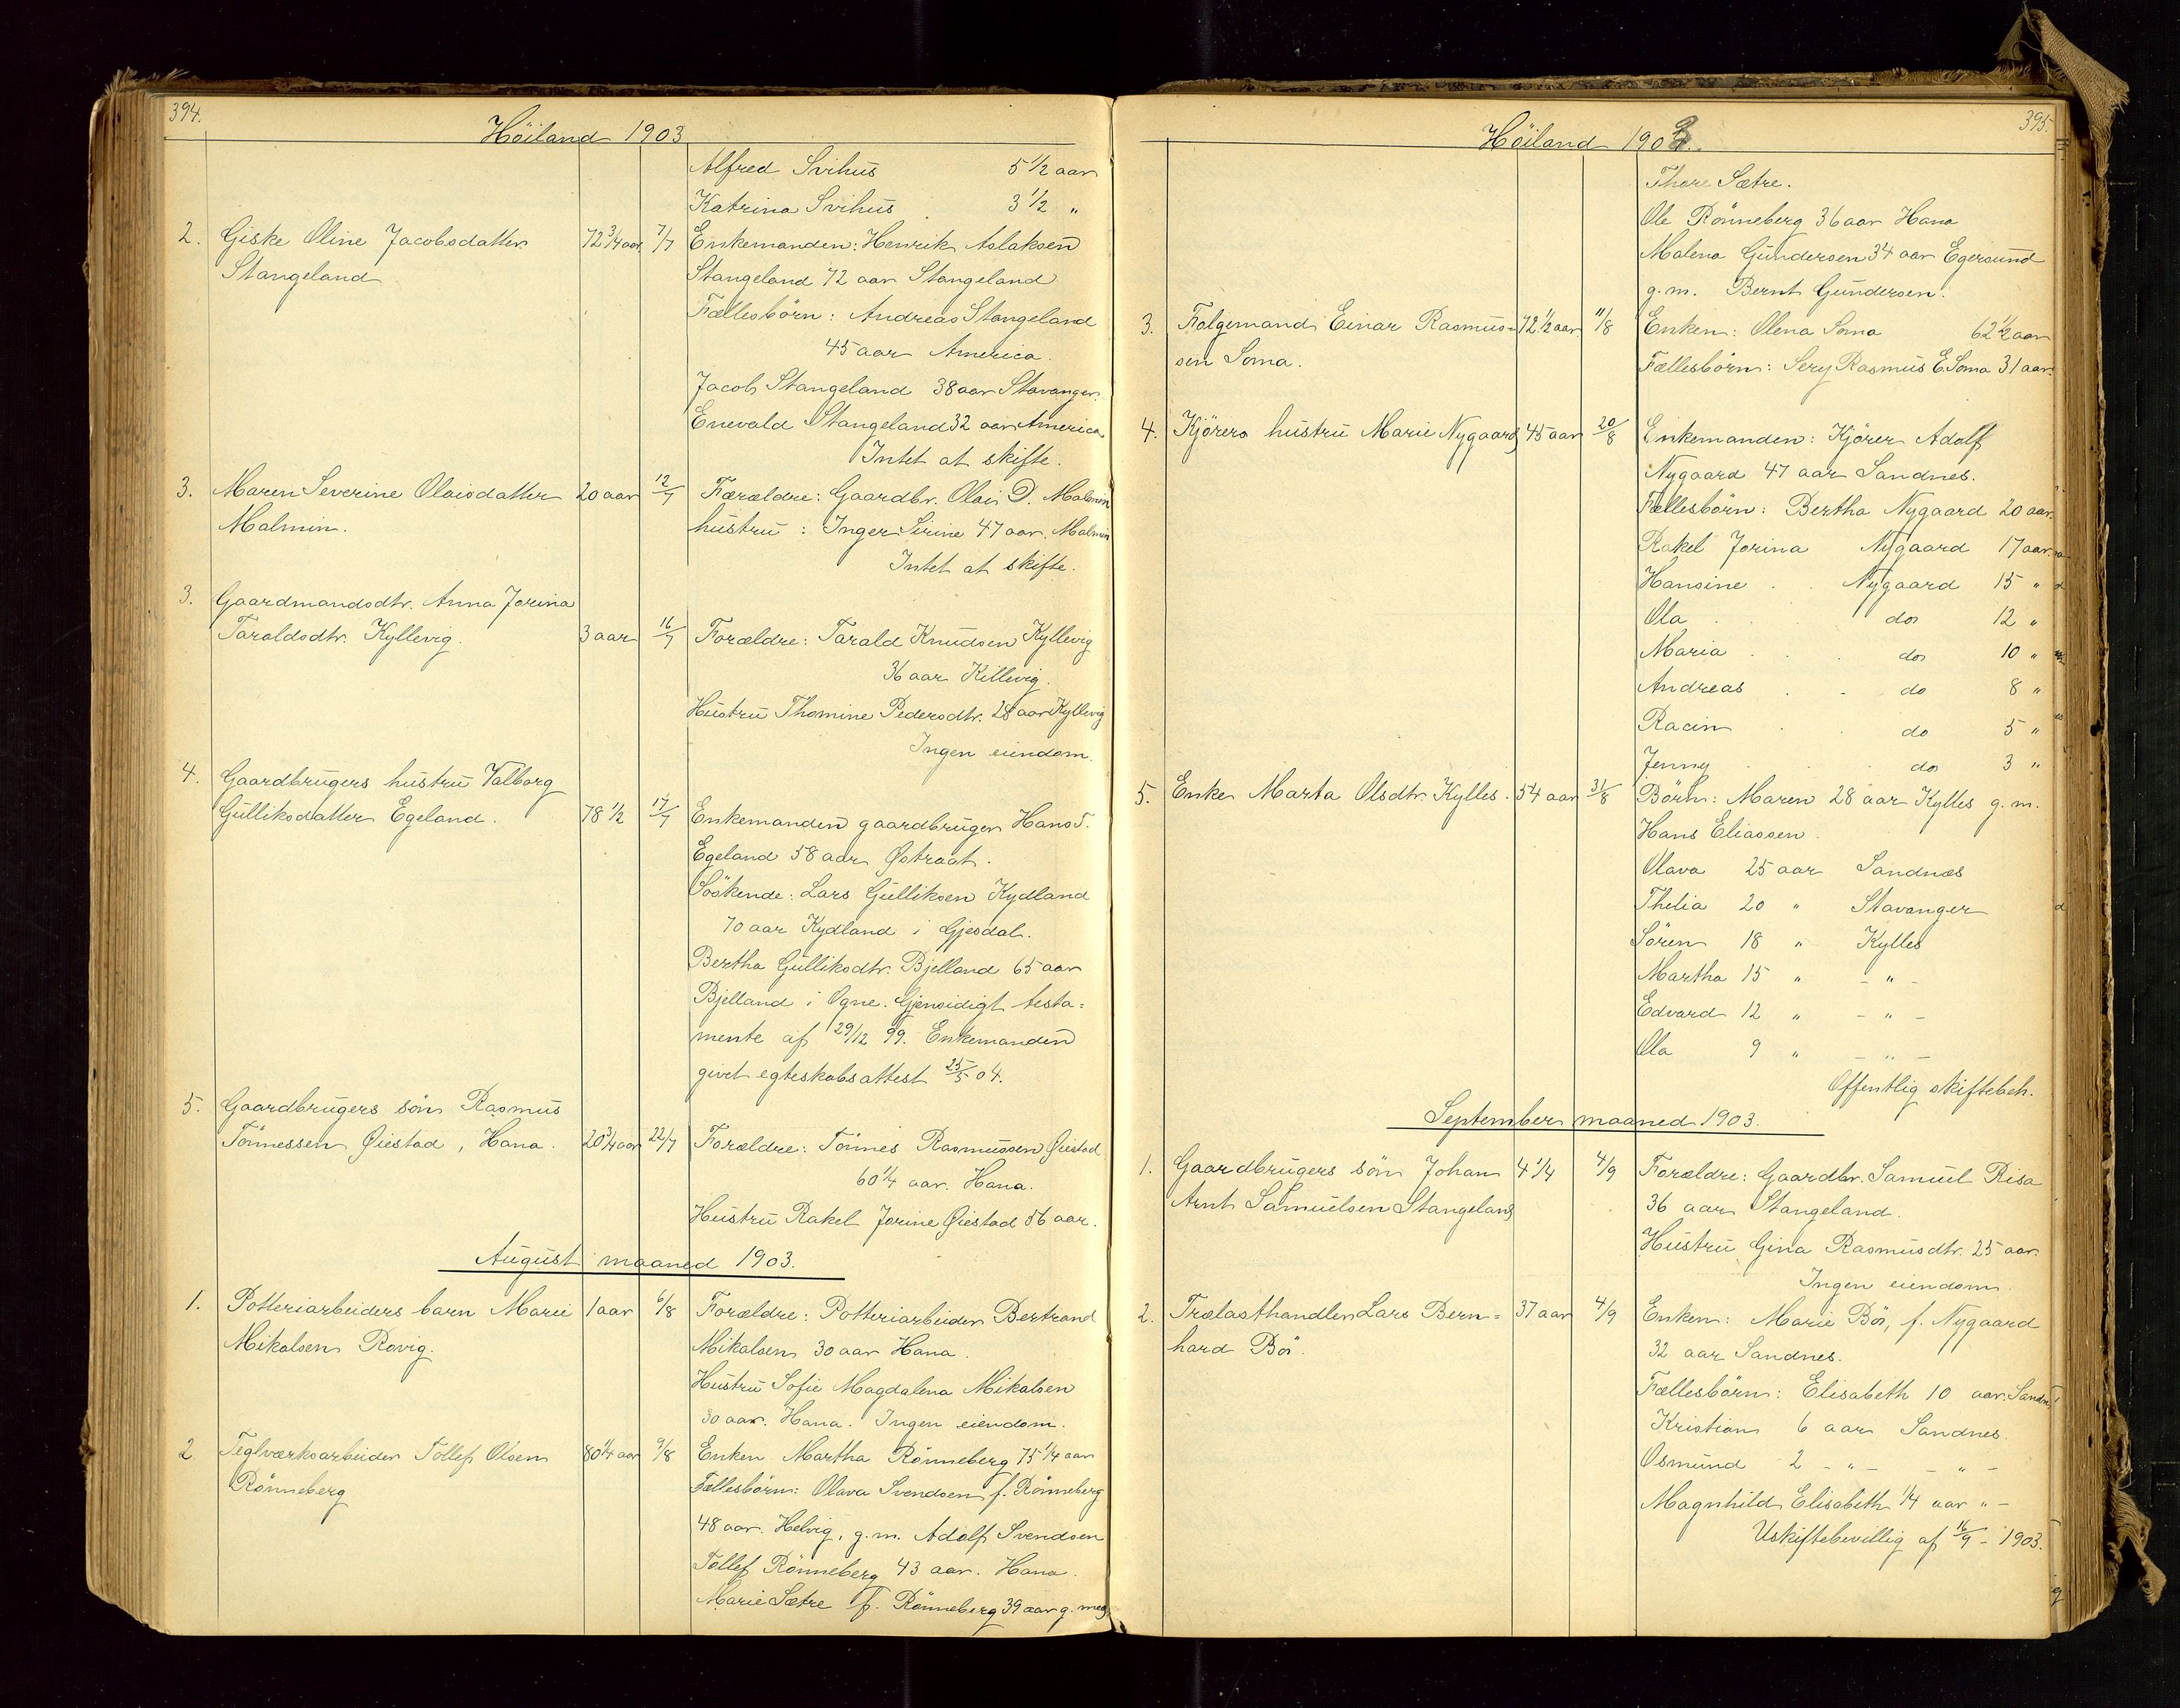 394.
Höiland 1903
Alfred Svihus 5 1/2 aar
Katrina Svihus 3 1/2 "
2. Giske Oline Jacobsdatter 72 3/4 aar 7/7 Enkemanden: Henrik Aslaksen
Stangeland Stangeland 72 aar Stangeland
Fællesbörn: Andreas Stangeland
45 aar America.
Jacob Stangeland 38 aar Stavanger.
Enevald Stangeland 32 aar America
Intet at skifte.
3. Maren Severine Olaisdatter 20 aar 12/7 Forældre: Gaardbr. Olai D. Malmin
Malmin. hustru: Inger Sirine 47 aar. Malmin
Intet at skifte.
3. Gaardmandsdtr. Anna Jorina
Taraldsdtr. Kyllevig. 3 aar 16/7 Forældre: Tarald Knudsen Kyllevig
36 aar Killevig.
Hustru Thomine Pedersdtr. 28 aar Kyllevig
Ingen eiendom.
4. Gaardbrugers hustru Valborg
Gulliksdatter Egeland. 78 1/2 17/7 Enkemanden gaardbruger Hans T.
Egeland 58 aar Østraat.
Söskende: Lars Gulliksen Kydland
70 aar Kydland i Gjesdal.
Bertha Gulliksdtr. Bjelland 65 aar
Bjelland i Ogne. Gjensidigt testa=
mente af 29/12 99. Enkemanden
givet egteskabsattest 25/5 04.
5. Gaardbrugers sön Rasmus
Tönnessen Øiestad, Hana. 20 3/4 aar 22/7 Forældre: Tönnes Rasmussen Øiestad
60 1/4 aar. Hana.
Hustru Rakel Jorine Øiestad 56 aar.
August maaned 1903.
1. Potteriarbeiders barn Marie 1 aar 6/8 Forældre: Potteriarbeider Bertrand
Mikalsen Rovig. Mikalsen 30 aar Hana.
Hustru Sofie Magdalena Mikalsen
30 aar. Hana. Ingen eiendom.
2 Teglværksarbeider Tollef Olsen 80 1/4 aar 9/8 Enken Martha Rönneberg 75 1/4 aar
Rönneberg Fællesbörn: Olava Svendsen f. Rönneberg
48 aar. Helvig, g.m. Adolf Svendsen
Tollef Rönneberg 43 aar. Hana.
Marie Sætre f. Rönneberg 39 aar g. med
395.
Höiland 1903.
Thore Sætre.
Ole Rönneberg 36 aar Hana
Malena Gundersen 34 aar Egersund
g.m. Bernt Gundersen.
3. Folgemand Einar Rasmus= 72 1/2 aar 11/8 Enken: Olena Soma 62 1/2 aar
sen Soma. Fællesbörn: Sery Rasmus E. Soma 31 aar.
4. Kjörers hustru Marie Nygaard 45 aar 20/8 Enkemanden: Kjörer Adolf
Nygaard 47 aar Sandnes.
Fællesbörn: Bertha Nygaard 20 aar.
Rakel Jorina Nygaard 17 aar.
Hansine Nygaard 15 "
Ola do 12 "
Maria do 10 "
Andreas do 8 "
Racin do 5 "
Jenny do 3 "
5. Enke Marta Olsdtr. Kylles. 54 aar 31/8 Börn: Maren 28 aar Kylles g. m.
Hans Eliassen.
Olava 25 aar Sandnæs
Thelia 20 " Stavanger
Sören 18 " Kylles
Martha 15 " - " -
Edvard 12 " - " -
Ola 9 " - " -
Offentlig skiftebeh.
September maaned 1903.
1. Gaardbrugers sön Johan 4 1/4 4/9 Forældre: Gaardbr. Samuel Risa
Arnt Samuelsen Stangeland 36 aar Stangeland.
Hustru Gina Rasmusdtr. 25 aar.
Ingen eiendom
2. Trælasthandler Lars Bern= 37 aar 4/9 Enken: Marie Bö, f. Nygaard
hard Bö. 32 aar Sandnes.
Fællesbörn: Elisabeth 10 aar. Sandn.
Kristian 6 aar Sandnes.
Osmund 2 - " - - " -
Magnhild Elisabeth 1/4 aar " -
Uskiftebevillig af 16/9 - 1903.